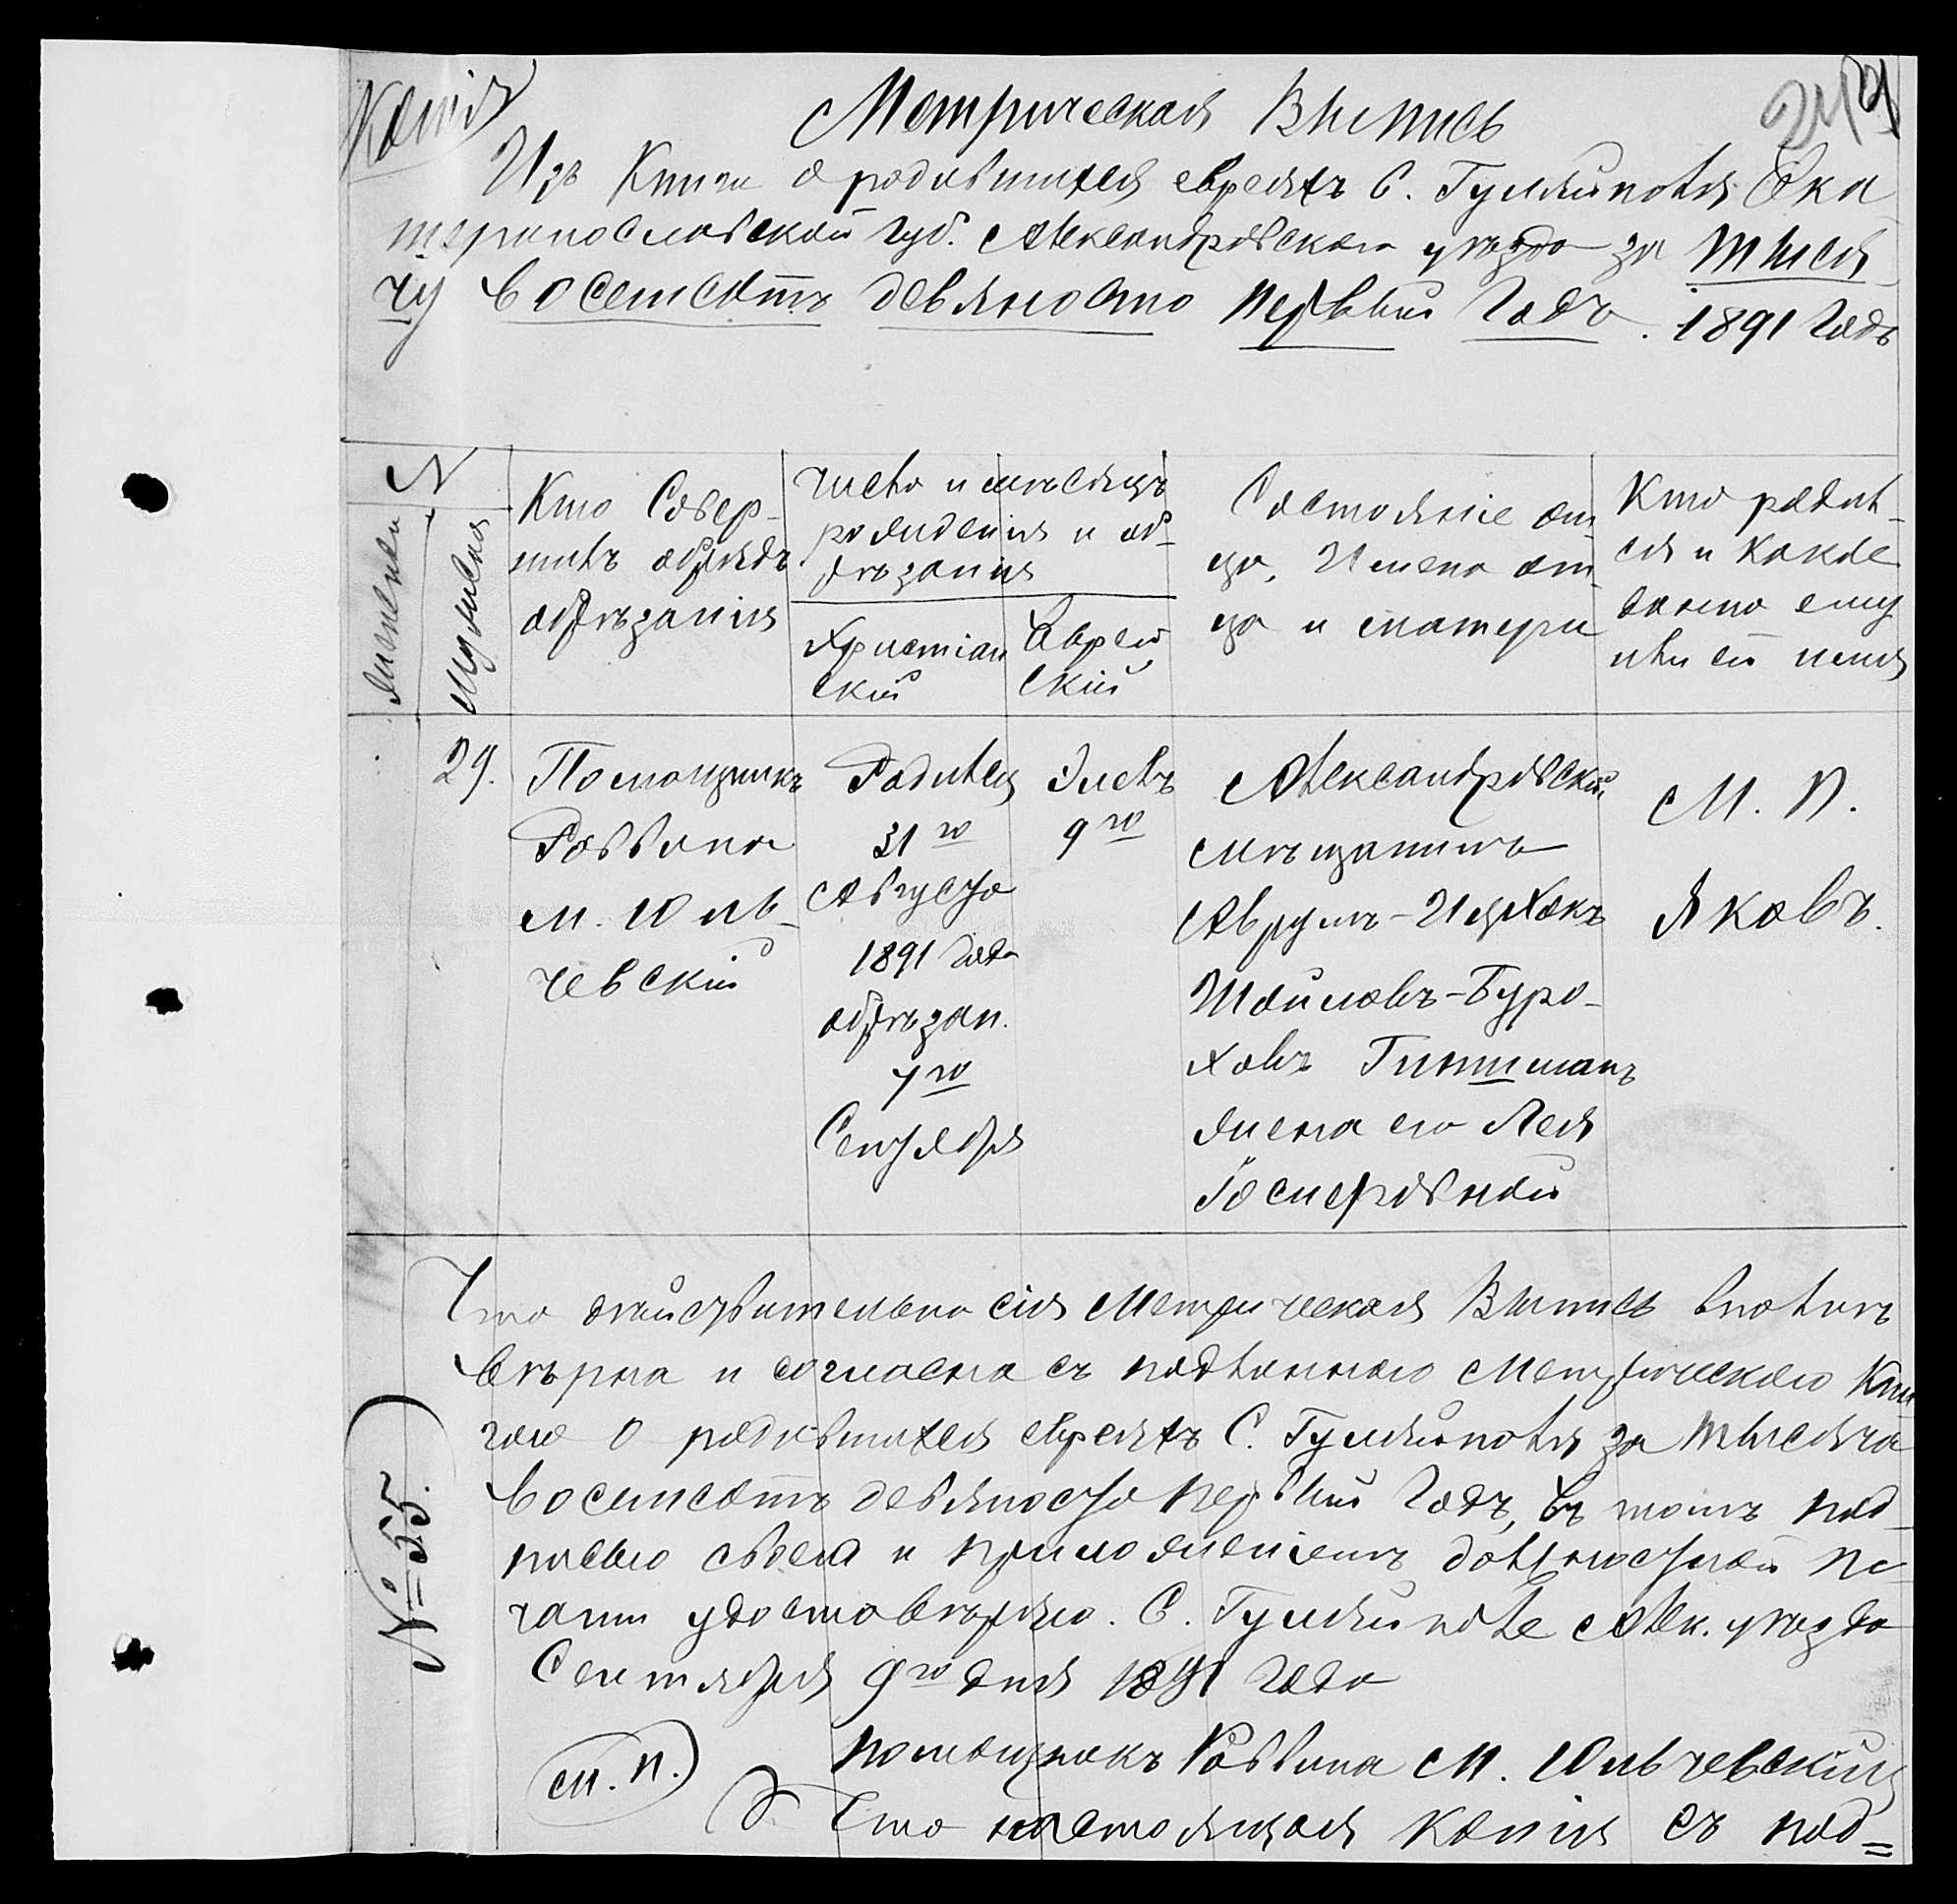 Копія
Метрическая Выпись
Изъ Книги о родившихся евреяхъ С. Гуляйполя Ека
теринославской губ. Александровскаго уѣзда за тыся
чу восемсотъ девяносто первый Годъ. 1891 Годъ
N
Женскаго
Мужеска
Кто Совер-
шилъ обрядъ
обрѣзанія
Число и мѣсяцъ
рожденія и об-
рѣзанія
Христіан
скій
Еврей
скій
Состояніе от
ца, Имена от
ца и матери
Кто родил-
ся и какое
данно ему
или ей имя
29.
Помощникъ
Раввина
М. Юль-
чевскій
Родился
31го
Августа
1891 Года
обрѣзан.
7го
Сентября
Элелъ
9го
Александровскій
мѣщанинъ
Аврумъ-Ицхокъ
Шоиловъ-Буро-
ховъ Гиншманъ
жена его Лея
Іосиеровной
М. П.
Яковъ.
Что дѣйствительно сія Метрическая Выпись вполнѣ
вѣрна и согласна съ подлинною Метрическою Кни
гою о родившихся евреяхъ С. Гуляйполя за тысяча
восемсотъ девяносто первый Годъ, въ томъ под-
писью своей и приложеніемъ должностной пе-
чати удостовѣряю. С. Гуляйполе Алек. уѣзда
Сентября 9го дня 1891 Года
№ 55.
Помощникъ Раввина М. Юльчевскій
(М. П.)
Что настоящая Копія съ под=